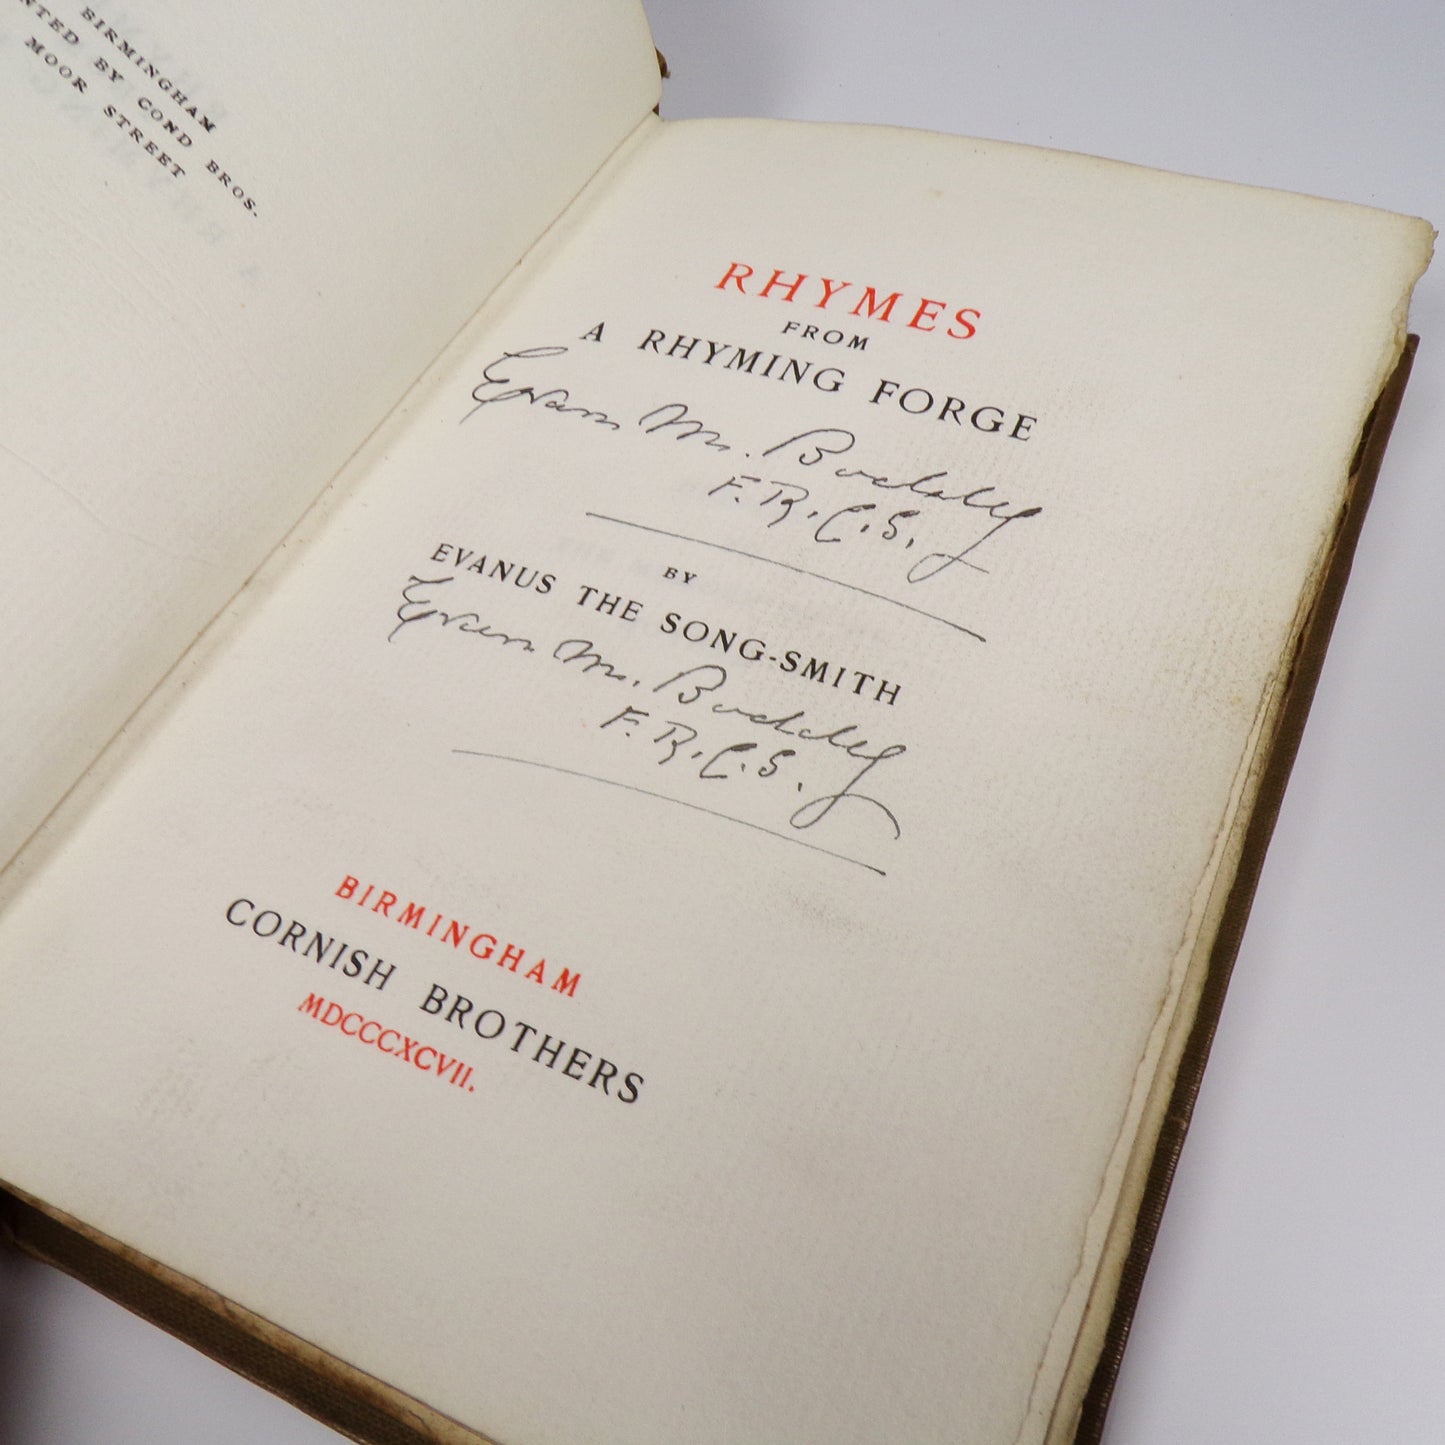 BIRMINGHAM
NTED BY COND BROS.
MOOR STREET
RHYMES
FROM
A RHYMING FORGE
Evan M. Boddy
F.R.C.S.
BY
EVANUS THE SONG-SMITH
Evan M. Boddy
F.R.C.S.
BIRMINGHAM
CORNISH BROTHERS
MDCCCXCVII.